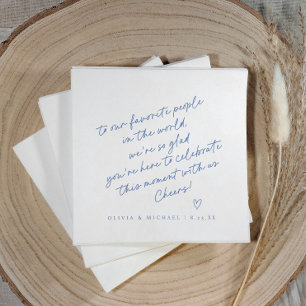 to our favorite people
in the world,
we're so glad
you're here to celebrate
this moment with us
Cheers!
OLIVIA & MICHAEL | 8.22.XX